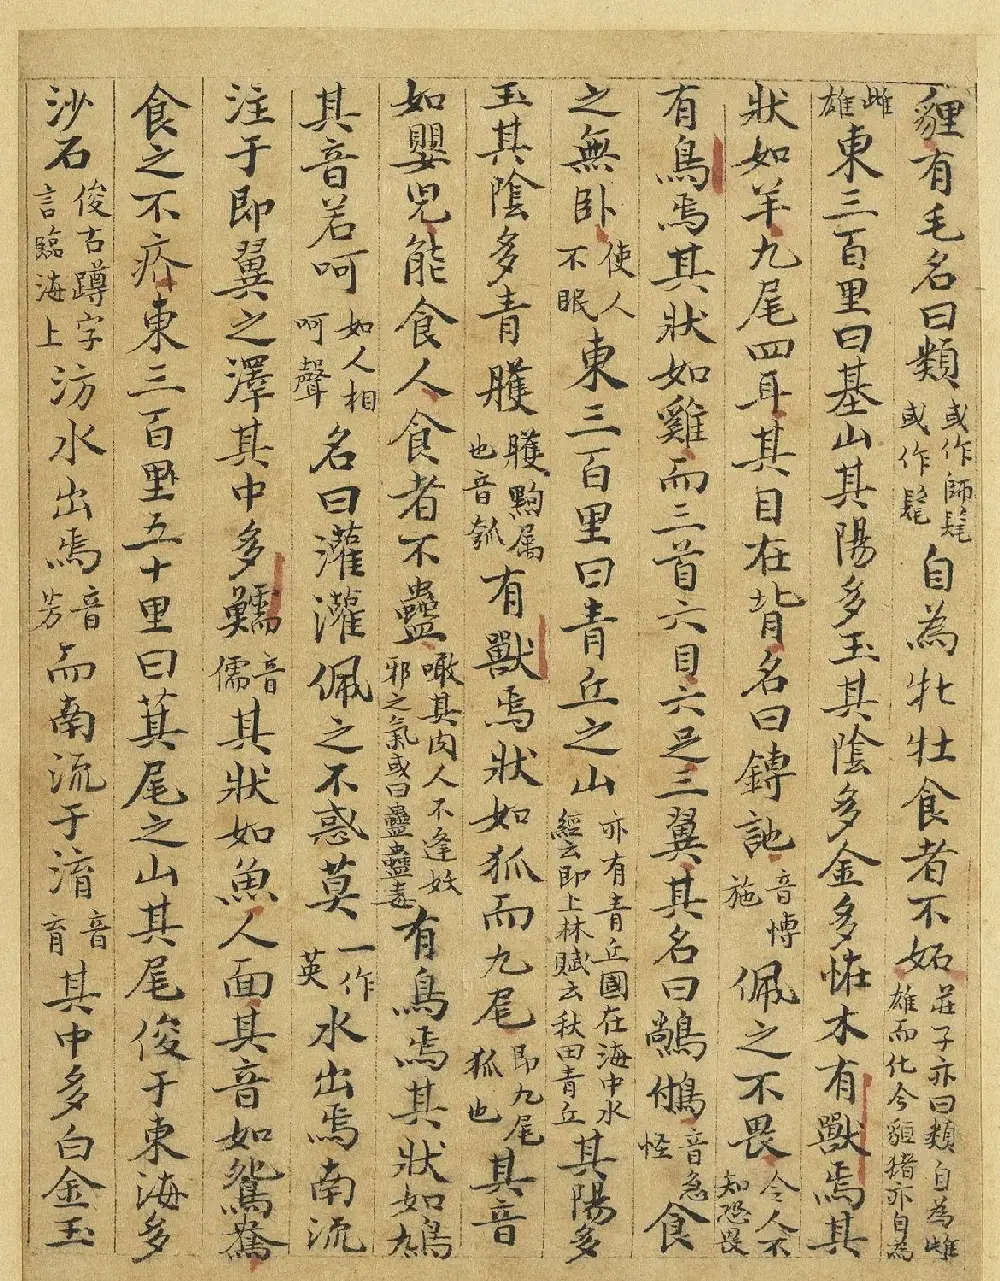 貍有毛名曰類或作師髦或作髦自為牝牡食者不妬莊子亦曰類自為雌雄而化今貆豬亦自為
雌雄東三百里曰基山其陽多玉其陰多金多恠木有獸焉其
狀如羊九尾四耳其目在背名曰鏄訑音博施佩之不畏令人不知恐畏
有鳥焉其狀如雞而三首六目六足三翼其名曰鷩𩿧音急怪食
之無卧使人不眠東三百里曰青丘之山亦有青丘國在海中水經云即上林賦云秋田青丘其陽多
玉其陰多青雘雘黝属也音瓠有獸焉狀如狐而九尾即九尾狐也其音
如嬰兒能食人食者不蠱噉其肉人不逢妖邪之氣或曰蠱蠱毒有鳥焉其狀如鳩
其音若呵如人相呵聲名曰灌灌佩之不惑莫一作英水出焉南流
注于即翼之澤其中多鱬音儒其狀如魚人面其音如鴛鴦
食之不疥東三百里五十里曰萁尾之山其尾俊于東海多
沙石俊古蹲字言臨海上汸水出焉音芳而南流于淯音育其中多白金玉